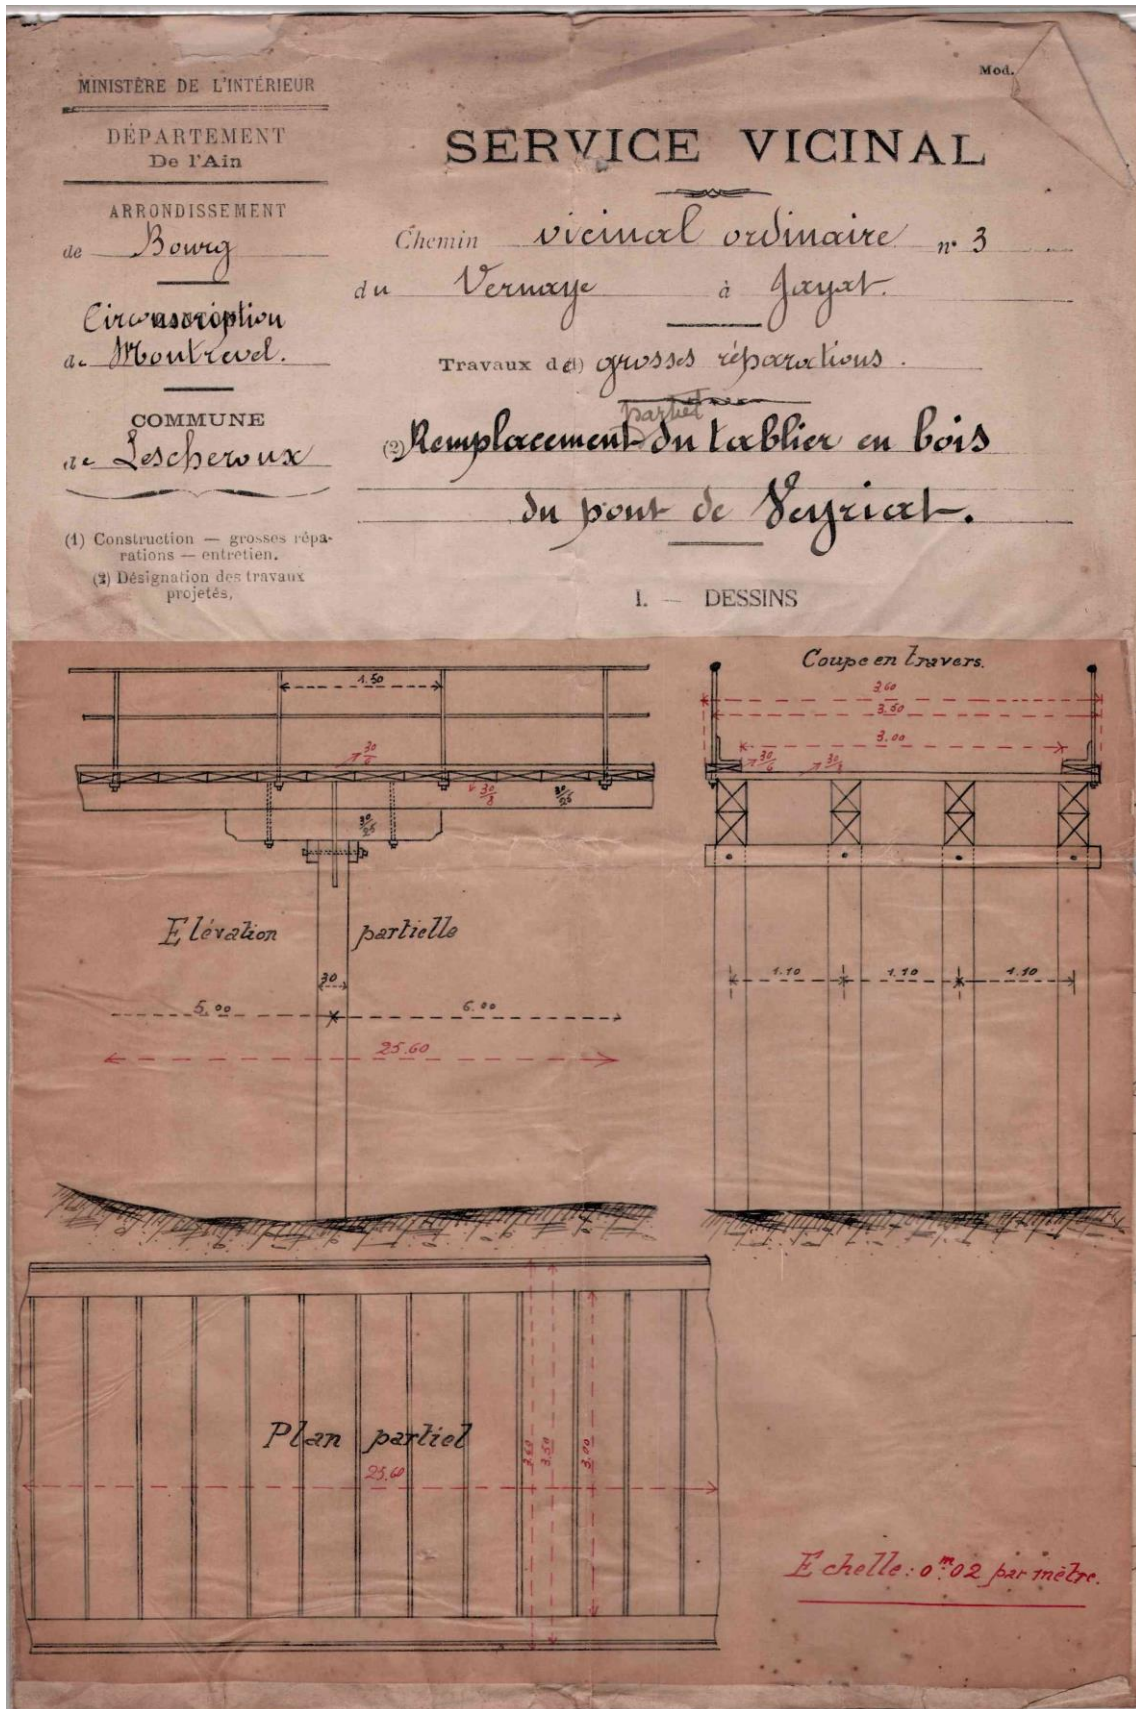 Mod.
MINISTÈRE DE L'INTÉRIEUR
DÉPARTEMENT
De l'Ain
ARRONDISSEMENT
de Bourg
Circonscription
de Montrevel.
COMMUNE
de Lescheroux
(1) Construction — grosses répa-
rations — entretien.
(2) Désignation des travaux
projetés,
SERVICE VICINAL
Chemin vicinal ordinaire n° 3
du Vernaye à Jayat.
Travaux de (1) grosses réparations.
partiel
(2) Remplacement du tablier en bois
du pont de Veyriat.
I. — DESSINS
1.50
30/6
30/8
30/25
30/25
Elévation partielle
30
5.00
6.00
25.60
Coupe en travers.
3.60
3.50
3.00
30/6
30/8
1.10
1.10
1.10
Plan partiel
25.60
3.60
3.50
3.00
Echelle: 0m02 par mètre.